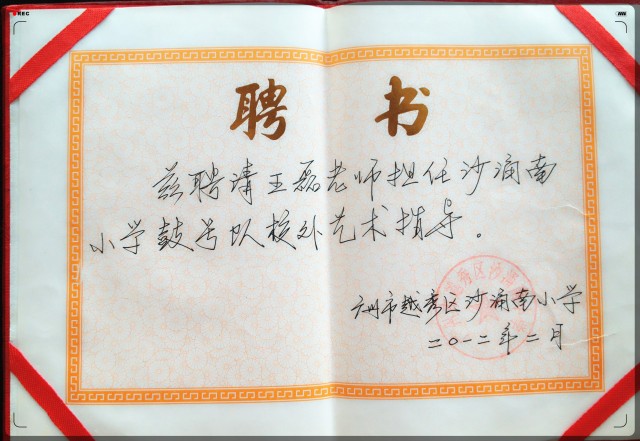 REC
聘书
兹聘请王磊老师担任沙涌南
小学鼓号队校外艺术指导。
广州市越秀区沙涌南小学
二〇一二年二月